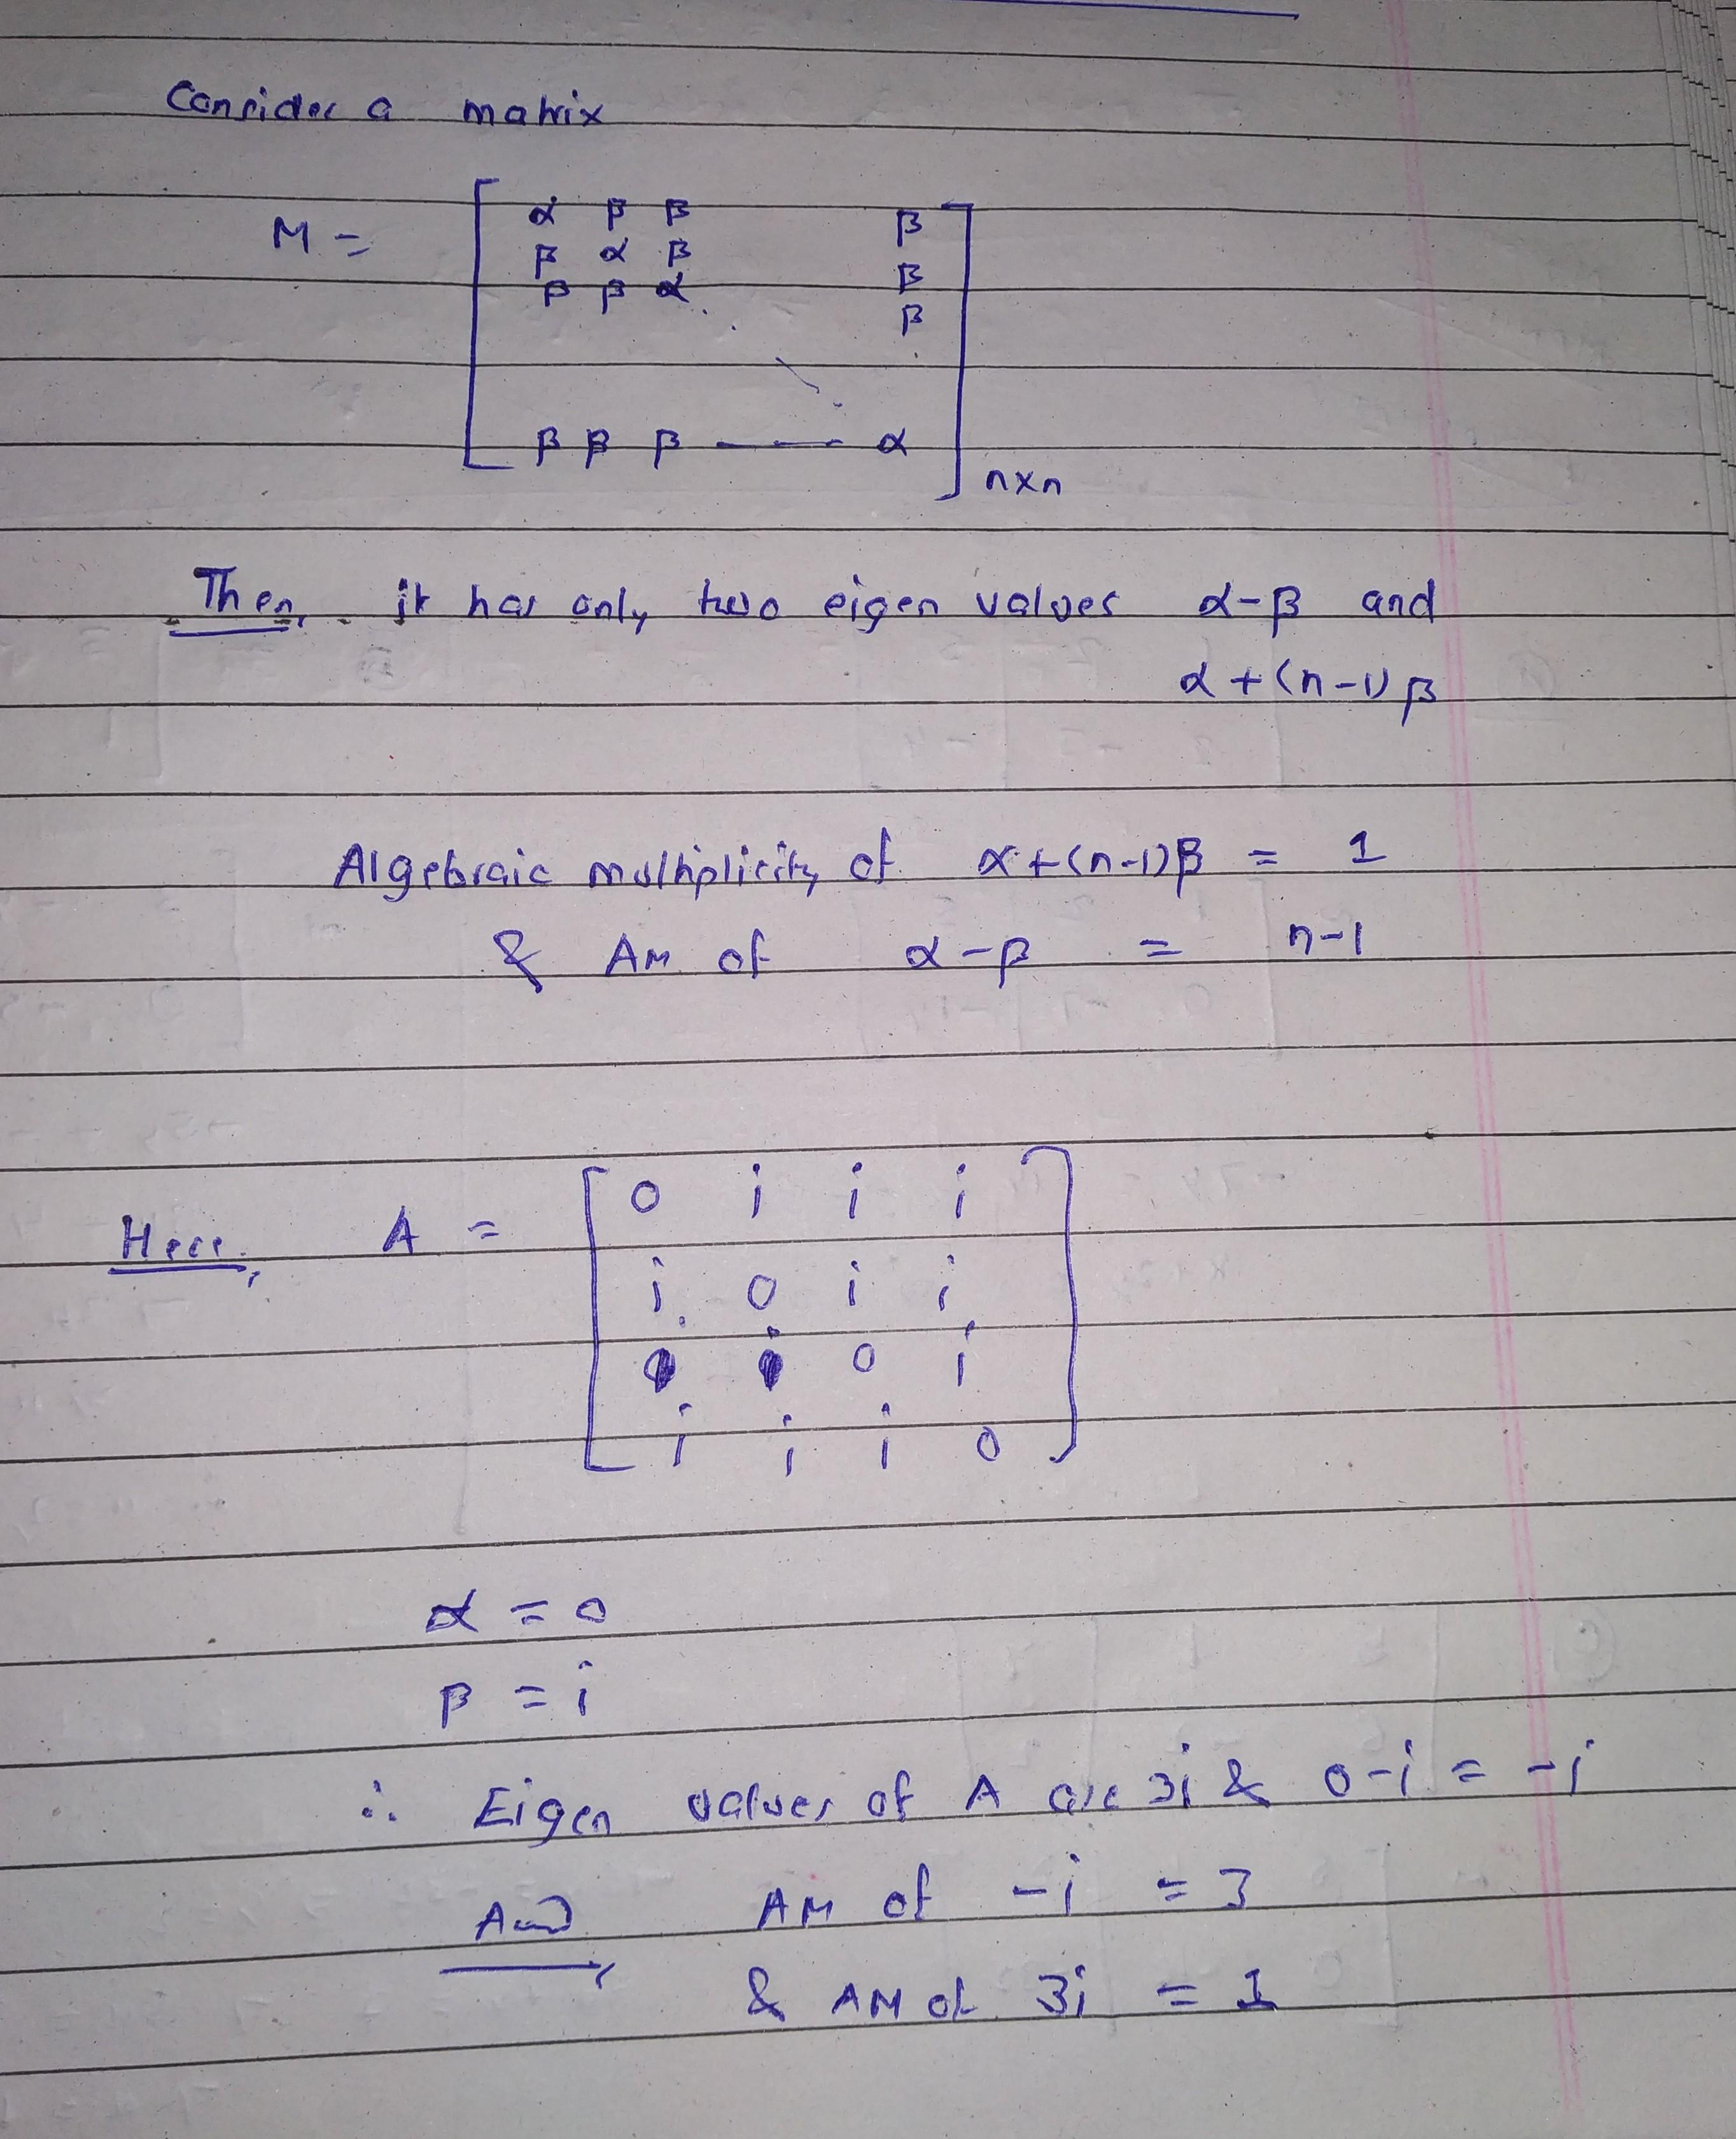 Consider a matrix
M = [ α β β β
β α β β
β β α . . β
β β β —— α ] n×n
Then, it has only two eigen values α-β and
α+(n-1)β
Algebraic multiplicity of α+(n-1)β = 1
& AM of α-β = n-1
Here, A = [ 0 i i i
i 0 i i
i i 0 i
i i i 0 ]
α = 0
β = i
∴ Eigen values of A are 3i & 0-i = -i
And, AM of -i = 3
& AM of 3i = 1